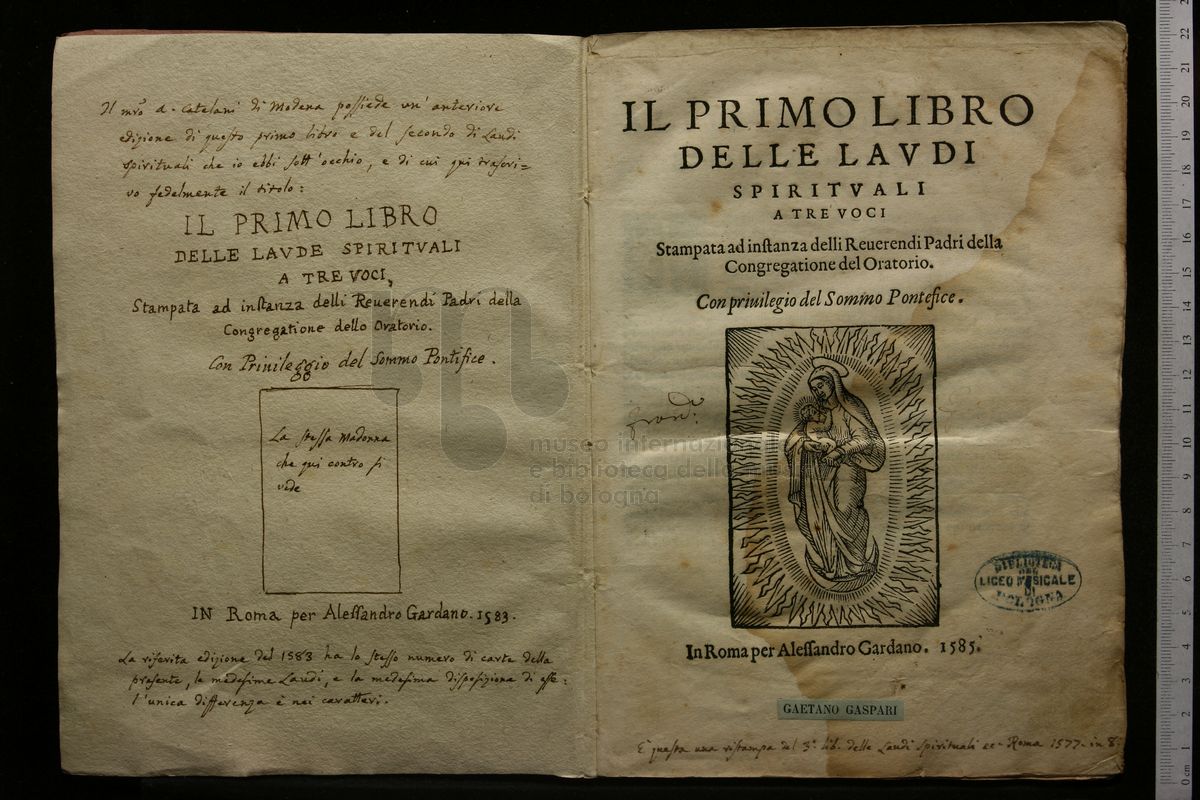 Il mro a. Catelani di Modena possiede un' anteriore
edizione di questo primo libro e del secondo di Laudi
spirituali che io ebbi sott'occhio, e di cui qui trascri=
vo fedelmente il titolo:
IL PRIMO LIBRO
DELLE LAVDE SPIRITVALI
A TRE VOCI,
Stampata ad instanza delli Reuerendi Padri della
Congregatione dello Oratorio.
Con Priuileggio del Sommo Pontifice.
La stessa Madonna
che qui contro si
vede
IN Roma per Alessandro Gardano. 1583.
La riferita edizione del 1583 ha lo stesso numero di carte della
presente, le medesime Laudi, e la medesima disposizione di esse:
l'unica differenza è nei caratteri.
IL PRIMO LIBRO
DELLE LAVDI
SPIRITVALI
A TRE VOCI
Stampata ad instanza delli Reuerendi Padri della
Congregatione del Oratorio.
Con priuilegio del Sommo Pontefice.
BIBLIOTECA
DEL
LICEO MUSICALE
DI
BOLOGNA
In Roma per Alessandro Gardano. 1585.
GAETANO GASPARI
È questa una ristampa del 3º lib. delle Laudi spirituali ec. Roma 1577. in 8.
museo internazi
e biblioteca della
di bologna
22
21
20
19
18
17
16
15
14
13
12
11
10
9
8
7
6
5
4
3
2
1
0 cm